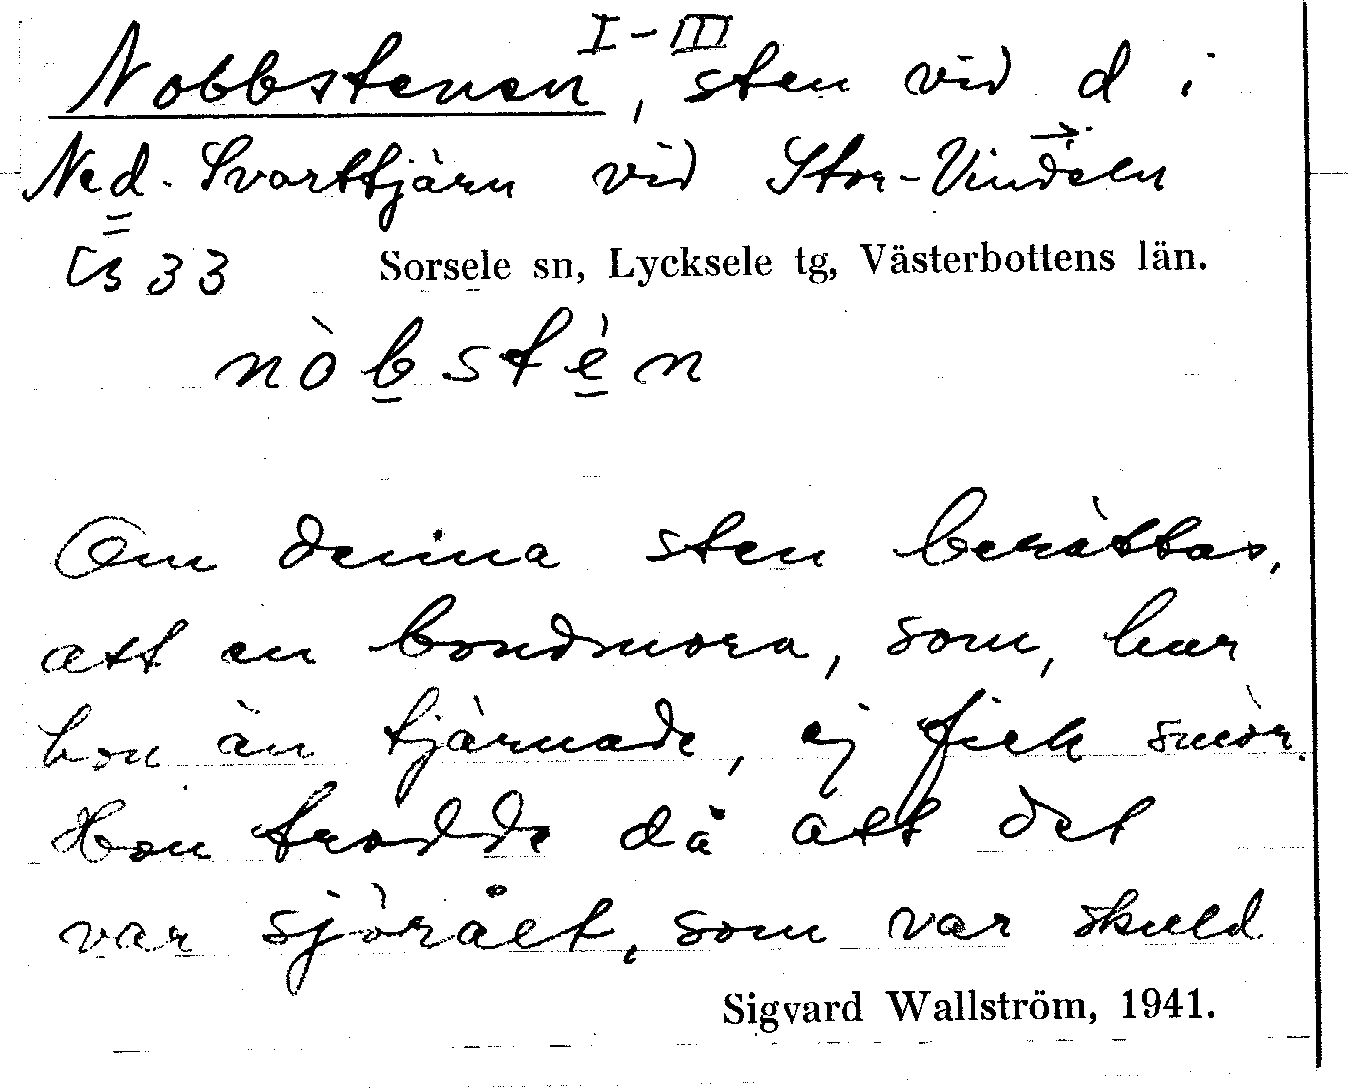 I-III
Nobbstenen, sten vid d i
Ned. Svarttjärn vid Stor-Vindeln
33 Sorsele sn, Lycksele tg, Västerbottens län.
nòbstèn
Om denna sten berättas,
att en bondmora, som, hur
hon än tjärnade, ej fick smör.
Hon trodde då att det
var sjörået, som var skuld
Sigvard Wallström, 1941.